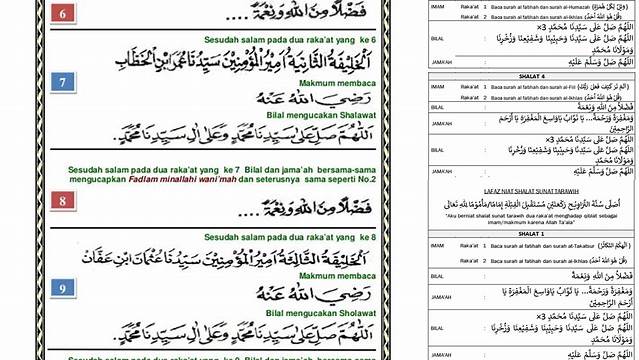 6
فَضْلًا مِنَ اللهِ وَنِعْمَةً ....
Sesudah salam pada dua raka'at yang ke 6
7
اَلْخَلِيْفَةُ الثَّانِيَةُ اَمِيْرُ الْمُؤْمِنِيْنَ سَيِّدُنَا عُمَرُ ابْنُ الْخَطَّابِ
Makmum membaca
رَضِيَ اللهُ عَنْهُ
Bilal mengucakan Shalawat
اَللّٰهُمَّ صَلِّ عَلَى سَيِّدِنَا مُحَمَّدٍ وَعَلَى اٰلِ سَيِّدِنَا مُحَمَّدٍ.
Sesudah salam pada dua raka'at yang ke 7 Bilal dan jama'ah bersama-sama
mengucapkan Fadlam minallahi wani'mah dan seterusnya sama seperti No.2
8
فَضْلًا مِنَ اللهِ وَنِعْمَةً ....
Sesudah salam pada dua raka'at yang ke 8
9
اَلْخَلِيْفَةُ الثَّالِثَةُ اَمِيْرُ الْمُؤْمِنِيْنَ سَيِّدُنَا عُثْمَانُ ابْنُ عَفَّانَ
Makmum membaca
رَضِيَ اللهُ عَنْهُ
Bilal mengucakan Sholawat
اَللّٰهُمَّ صَلِّ عَلَى سَيِّدِنَا مُحَمَّدٍ وَعَلَى اٰلِ سَيِّدِنَا مُحَمَّدٍ.
IMAM Raka'at 1 Baca surah al fatihah dan surah al-Humazah (وَيْلٌ لِكُلِّ هُمَزَةٍ)
Raka'at 2 Baca surah al fatihah dan surah al-Ikhlas (قُلْ هُوَ اللهُ أَحَدٌ)
BILAL : اَللّٰهُمَّ صَلِّ عَلَى سَيِّدِنَا مُحَمَّدٍ 3×
اَللّٰهُمَّ صَلِّ عَلَى سَيِّدِنَا وَحَبِيْبِنَا وَشَفِيْعِنَا وَذُخْرِنَا
وَمَوْلَانَا مُحَمَّدٍ
JAMA'AH : اَللّٰهُمَّ صَلِّ وَسَلِّمْ عَلَيْهِ
SHALAT 4
IMAM Raka'at 1 Baca surah al fatihah dan surah al-Fiil (اَلَمْ تَرَ كَيْفَ فَعَلَ رَبُّكَ)
Raka'at 2 Baca surah al fatihah dan surah al-Ikhlas (قُلْ هُوَ اللهُ أَحَدٌ)
BILAL : فَضْلًا مِنَ اللهِ وَنِعْمَةً
JAMA'AH : وَمَغْفِرَةً وَرَحْمَةً... يَا تَوَّابُ يَاوَاسِعَ الْمَغْفِرَةِ يَا اَرْحَمَ
الرَّاحِمِيْنَ
BILAL : اَللّٰهُمَّ صَلِّ عَلَى سَيِّدِنَا مُحَمَّدٍ 3×
اَللّٰهُمَّ صَلِّ عَلَى سَيِّدِنَا وَحَبِيْبِنَا وَشَفِيْعِنَا وَذُخْرِنَا
وَمَوْلَانَا مُحَمَّدٍ
JAMA'AH : اَللّٰهُمَّ صَلِّ وَسَلِّمْ عَلَيْهِ
LAFAZ NIAT SHALAT SUNAT TARAWIH
أُصَلِّى سُنَّةَ التَّرَاوِيْحِ رَكْعَتَيْنِ مُسْتَقْبِلَ الْقِبْلَةِ إِمَامًا/مَأْمُوْمًا لِلّٰهِ تَعَالَى
"Aku berniat shalat sunat tarawih dua raka'at menghadap qiblat sebagai
imam/makmum karena Allah Ta'ala"
SHALAT 1
IMAM Raka'at 1 Baca surah al fatihah dan surah at-Takatsur (اَلْهٰكُمُ التَّكَاثُرُ)
Raka'at 2 Baca surah al fatihah dan surah al-Ikhlas (قُلْ هُوَ اللهُ أَحَدٌ)
BILAL : فَضْلًا مِنَ اللهِ وَنِعْمَةً
JAMA'AH : وَمَغْفِرَةً وَرَحْمَةً... يَا تَوَّابُ يَاوَاسِعَ الْمَغْفِرَةِ يَا
اَرْحَمَ الرَّاحِمِيْنَ
BILAL : اَللّٰهُمَّ صَلِّ عَلَى سَيِّدِنَا مُحَمَّدٍ 3×
اَللّٰهُمَّ صَلِّ عَلَى سَيِّدِنَا وَحَبِيْبِنَا وَشَفِيْعِنَا وَذُخْرِنَا
وَمَوْلَانَا مُحَمَّدٍ
JAMA'AH : اَللّٰهُمَّ صَلِّ وَسَلِّمْ عَلَيْهِ